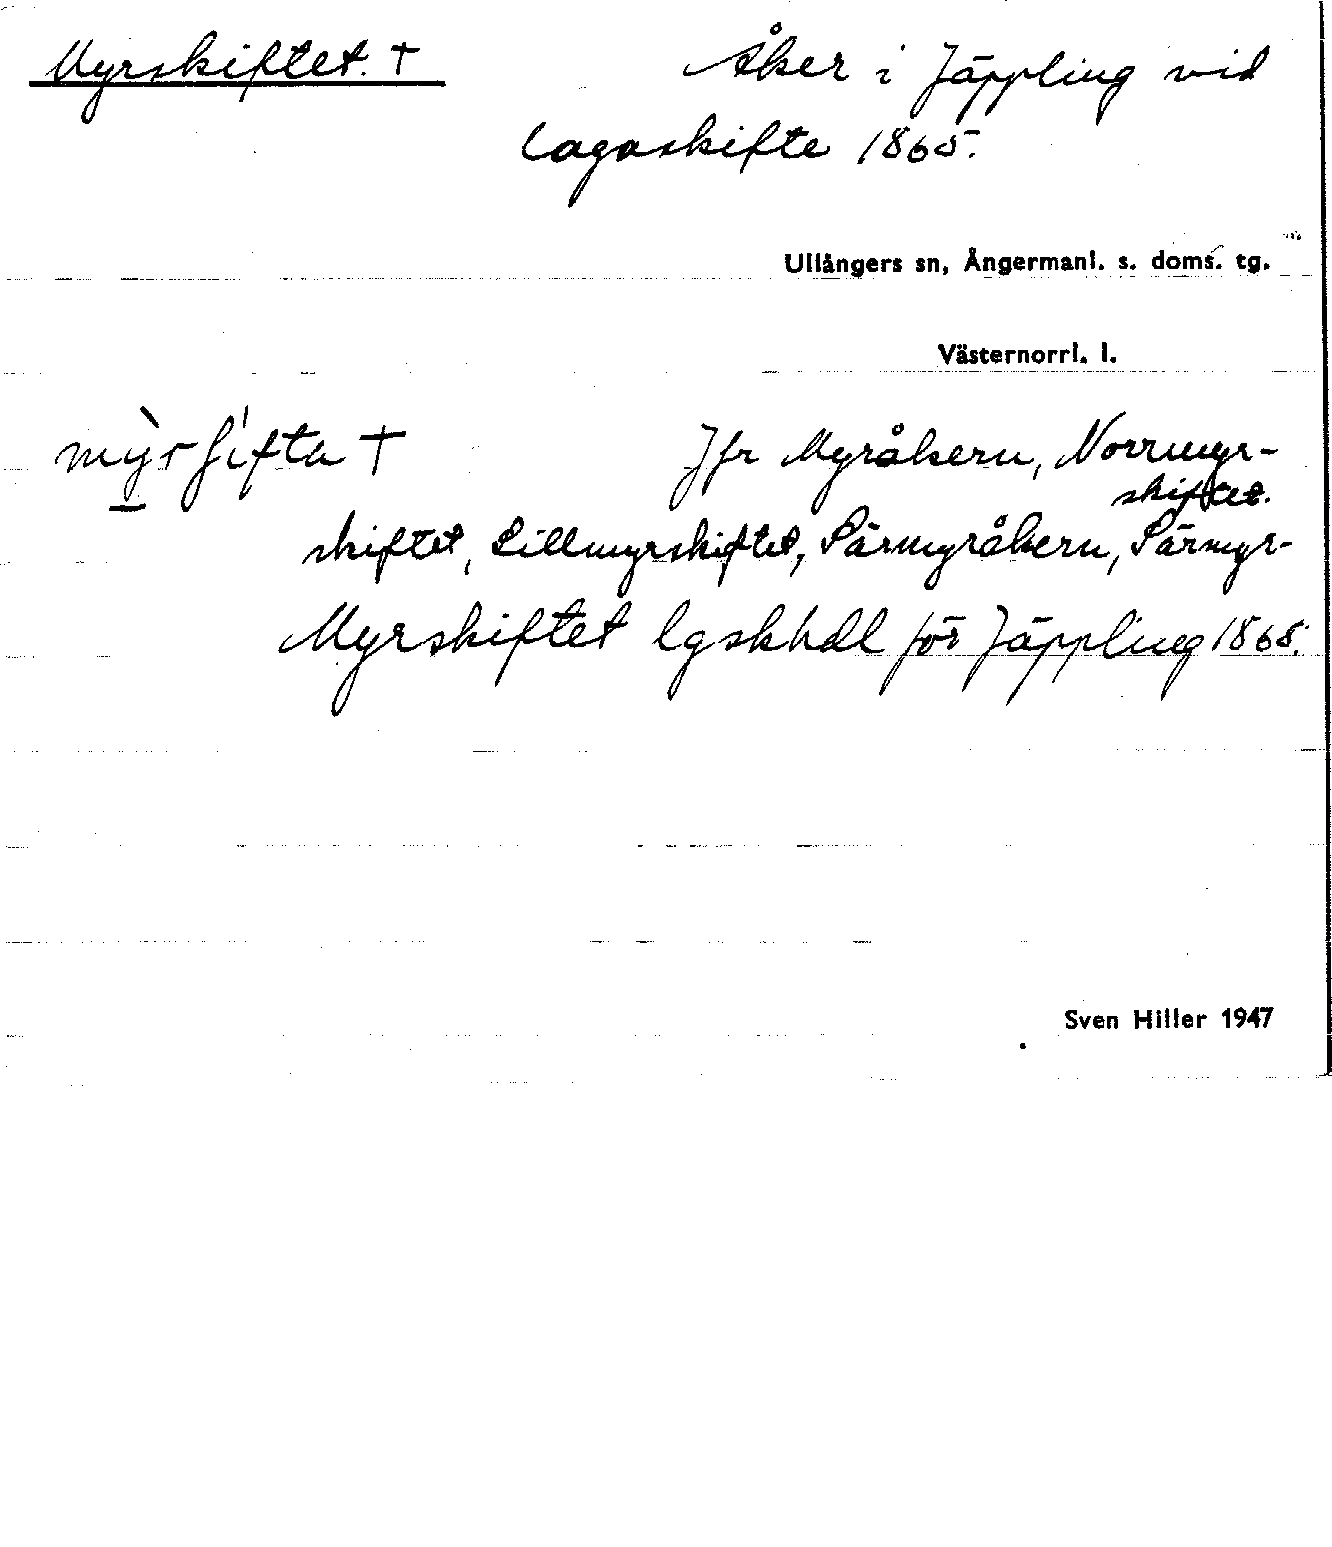 Myrskiftet. †
Åker i Jäppling vid
lagaskifte 1865.
Ullångers sn, Ångermanl. s. doms. tg.
Västernorrl. l.
mỳrʃìfta †
Jfr Myråkern, Norrmyr-
skiftet, Lillmyrskiftet, Pärmyråkern, Pärmyr-
skiftet.
Myrskiftet lgskhdl för Jäppling 1865.
Sven Hiller 1947